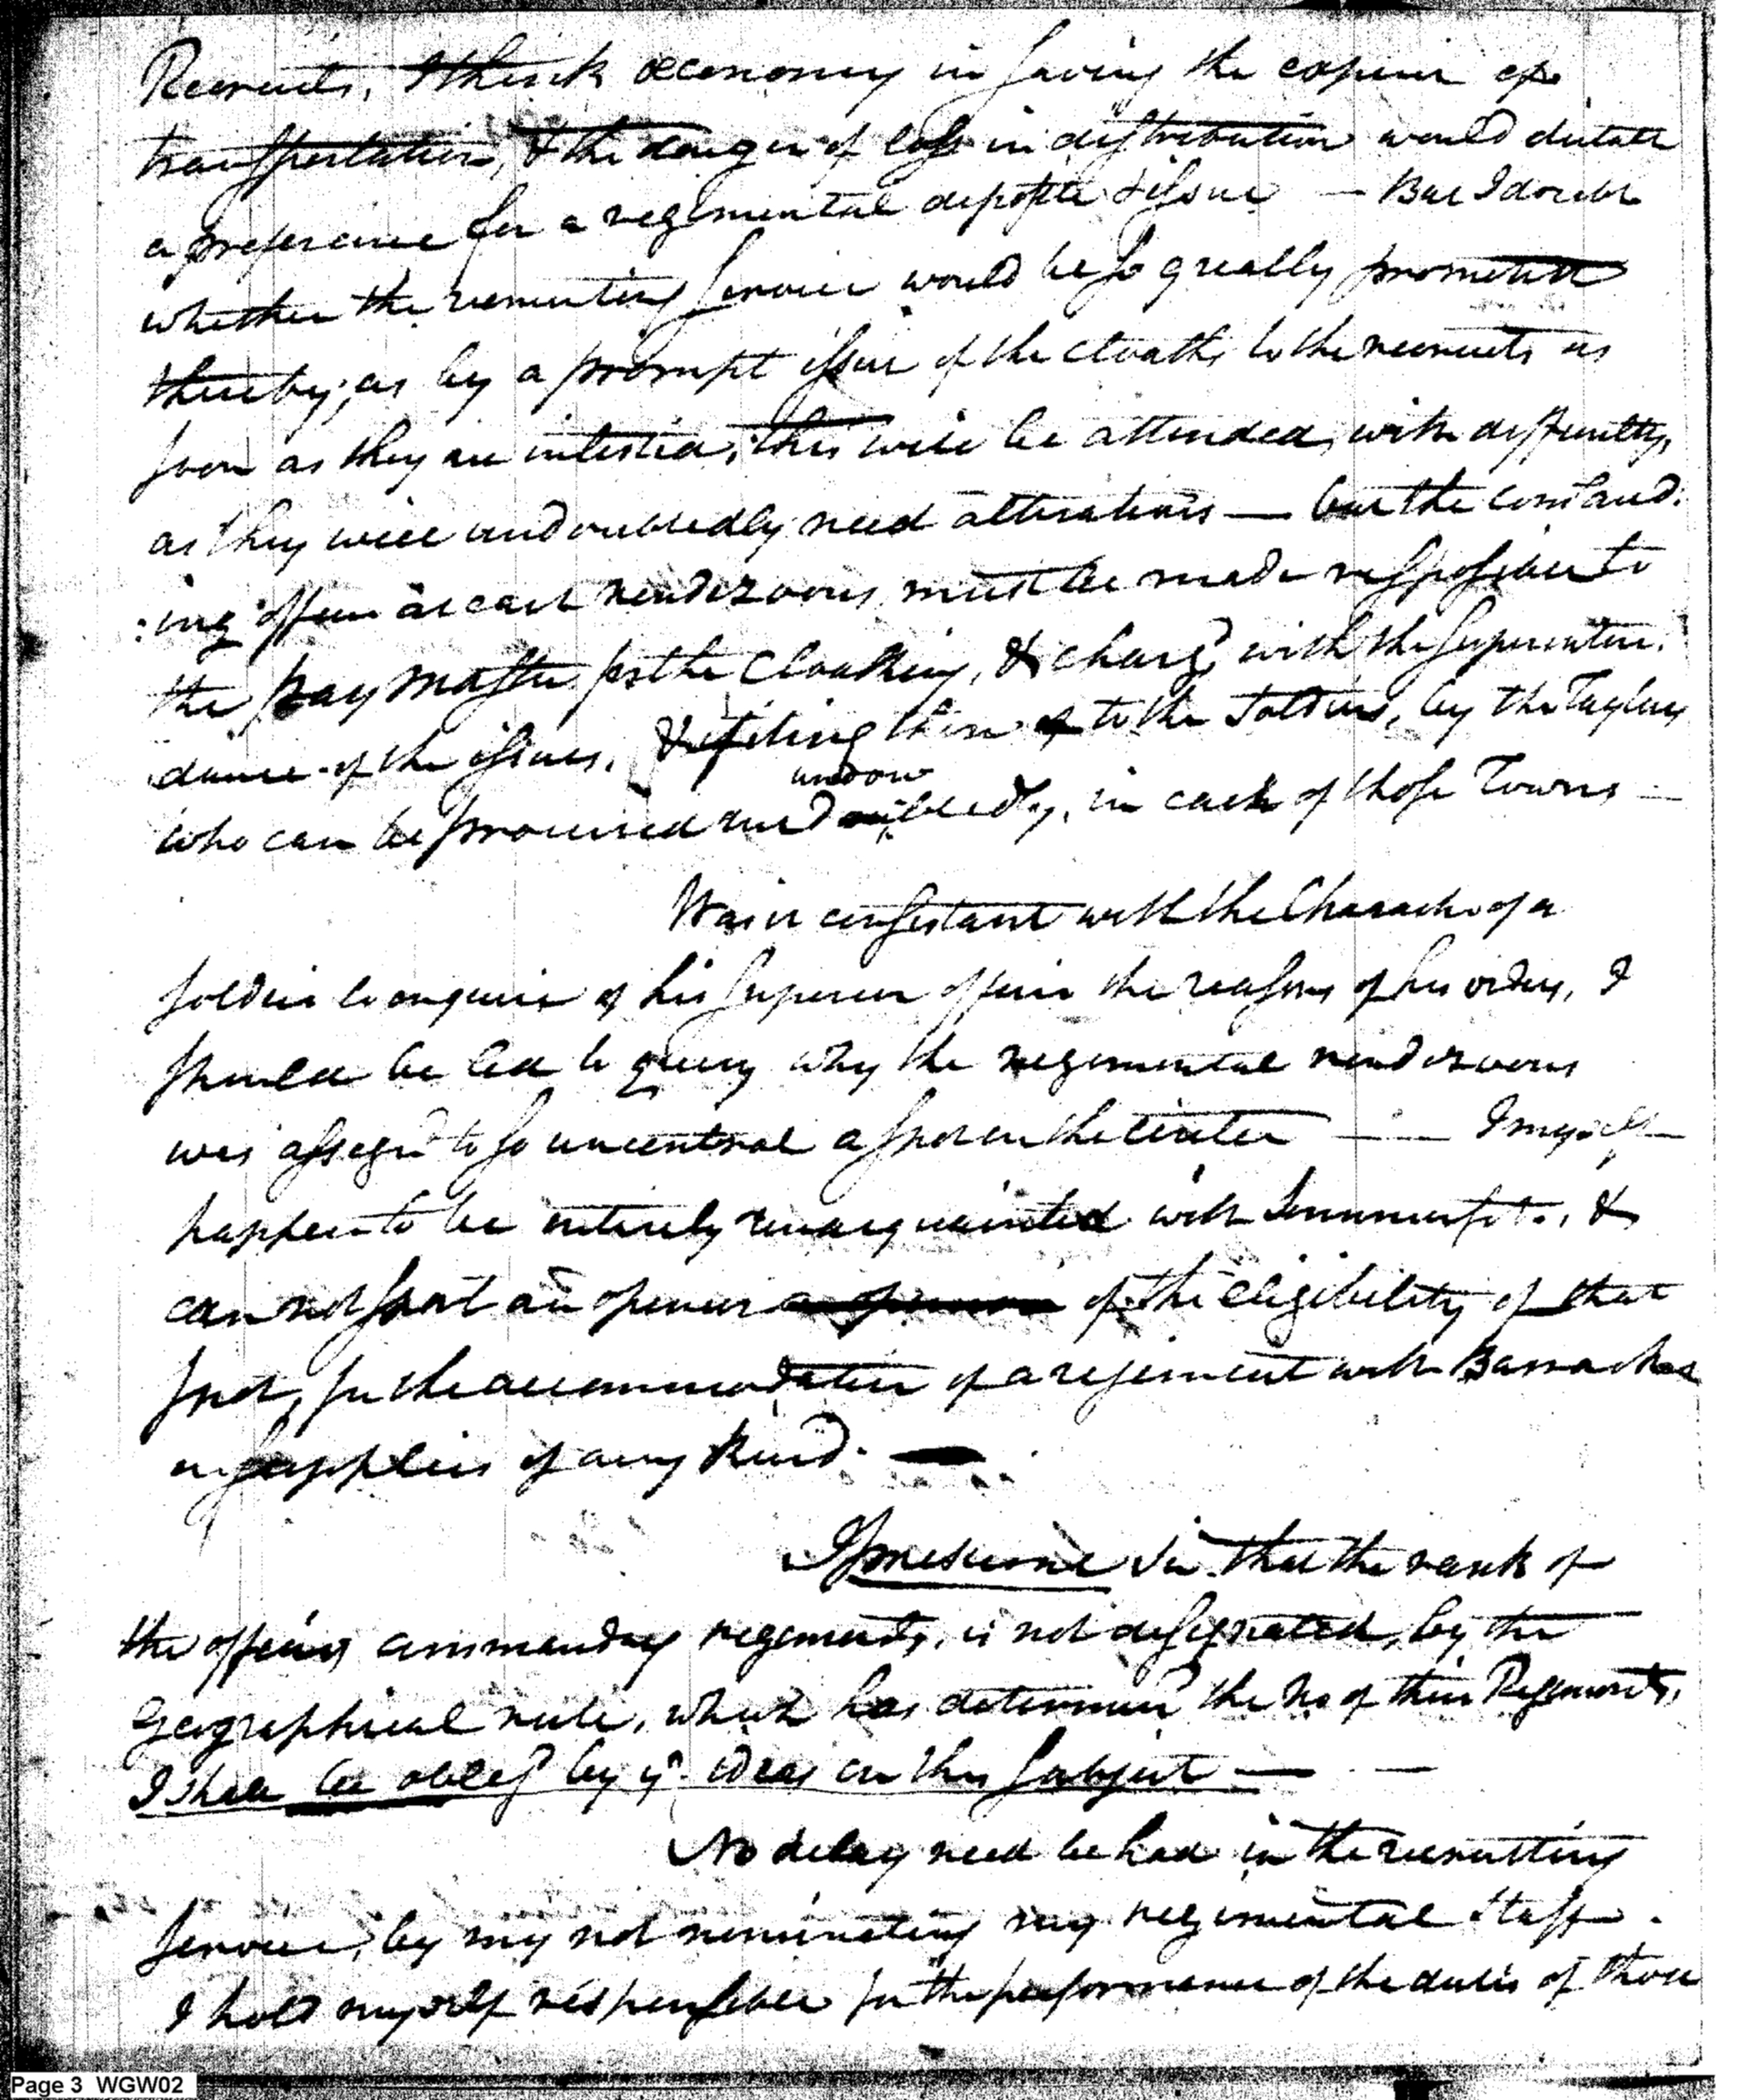 Recruits, I think œconomy in saving the expence of
transportation, & the danger of loss in distribution would dictate
a preference for a regimental deposite & issue — But I doubt
whether the recruiting service would be so greatly promoted
thereby, as by a prompt issue of the cloaths to the recruits as
soon as they are inlisted, this will be attended with difficulty,
as they will undoubtedly need alterations — but the command:
:ing officer at each rendezvous must be made responsible to
the pay master for the Cloathing, & charg'd with the superinten:
dance of the issues, & fitting them to the Soldiers, by the Taylors
undou
who can be procured undoubtedly, in each of those Towns —
Was it consistant with the Character of a
soldier to enquire of his superior officer the reasons of his orders, I
should be led to query why the regimental rendezvous
was assign'd to so uncentral a spot on the — I myself
happen to be entirely unacquainted with , &
can not sport an opinion of the eligibility of that
spot, for the accommodation of a regiment with Barracks
or supplies of any kind. —
I presume Sir that the rank of
the officers commanding regiments, is not designated, by the
Geographical rule, which has determin'd the No of their Regiments,
I shall be oblig'd by yr. ideas on this subject — —
No delay need be had in the recruiting
service, by my not nominating my regimental Staff.
I hold myself responsible for the performance of the duties of those
Page 3 WGW02